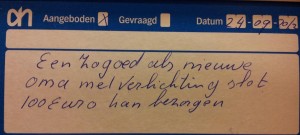 ah Aangeboden X Gevraagd Datum 24-09-20
Een zo goed als nieuwe
oma met verlichting slot
100 Euro kan bezorgen